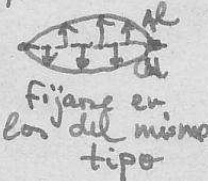 Al
Cu
Fijarse en
los del mismo
tipo